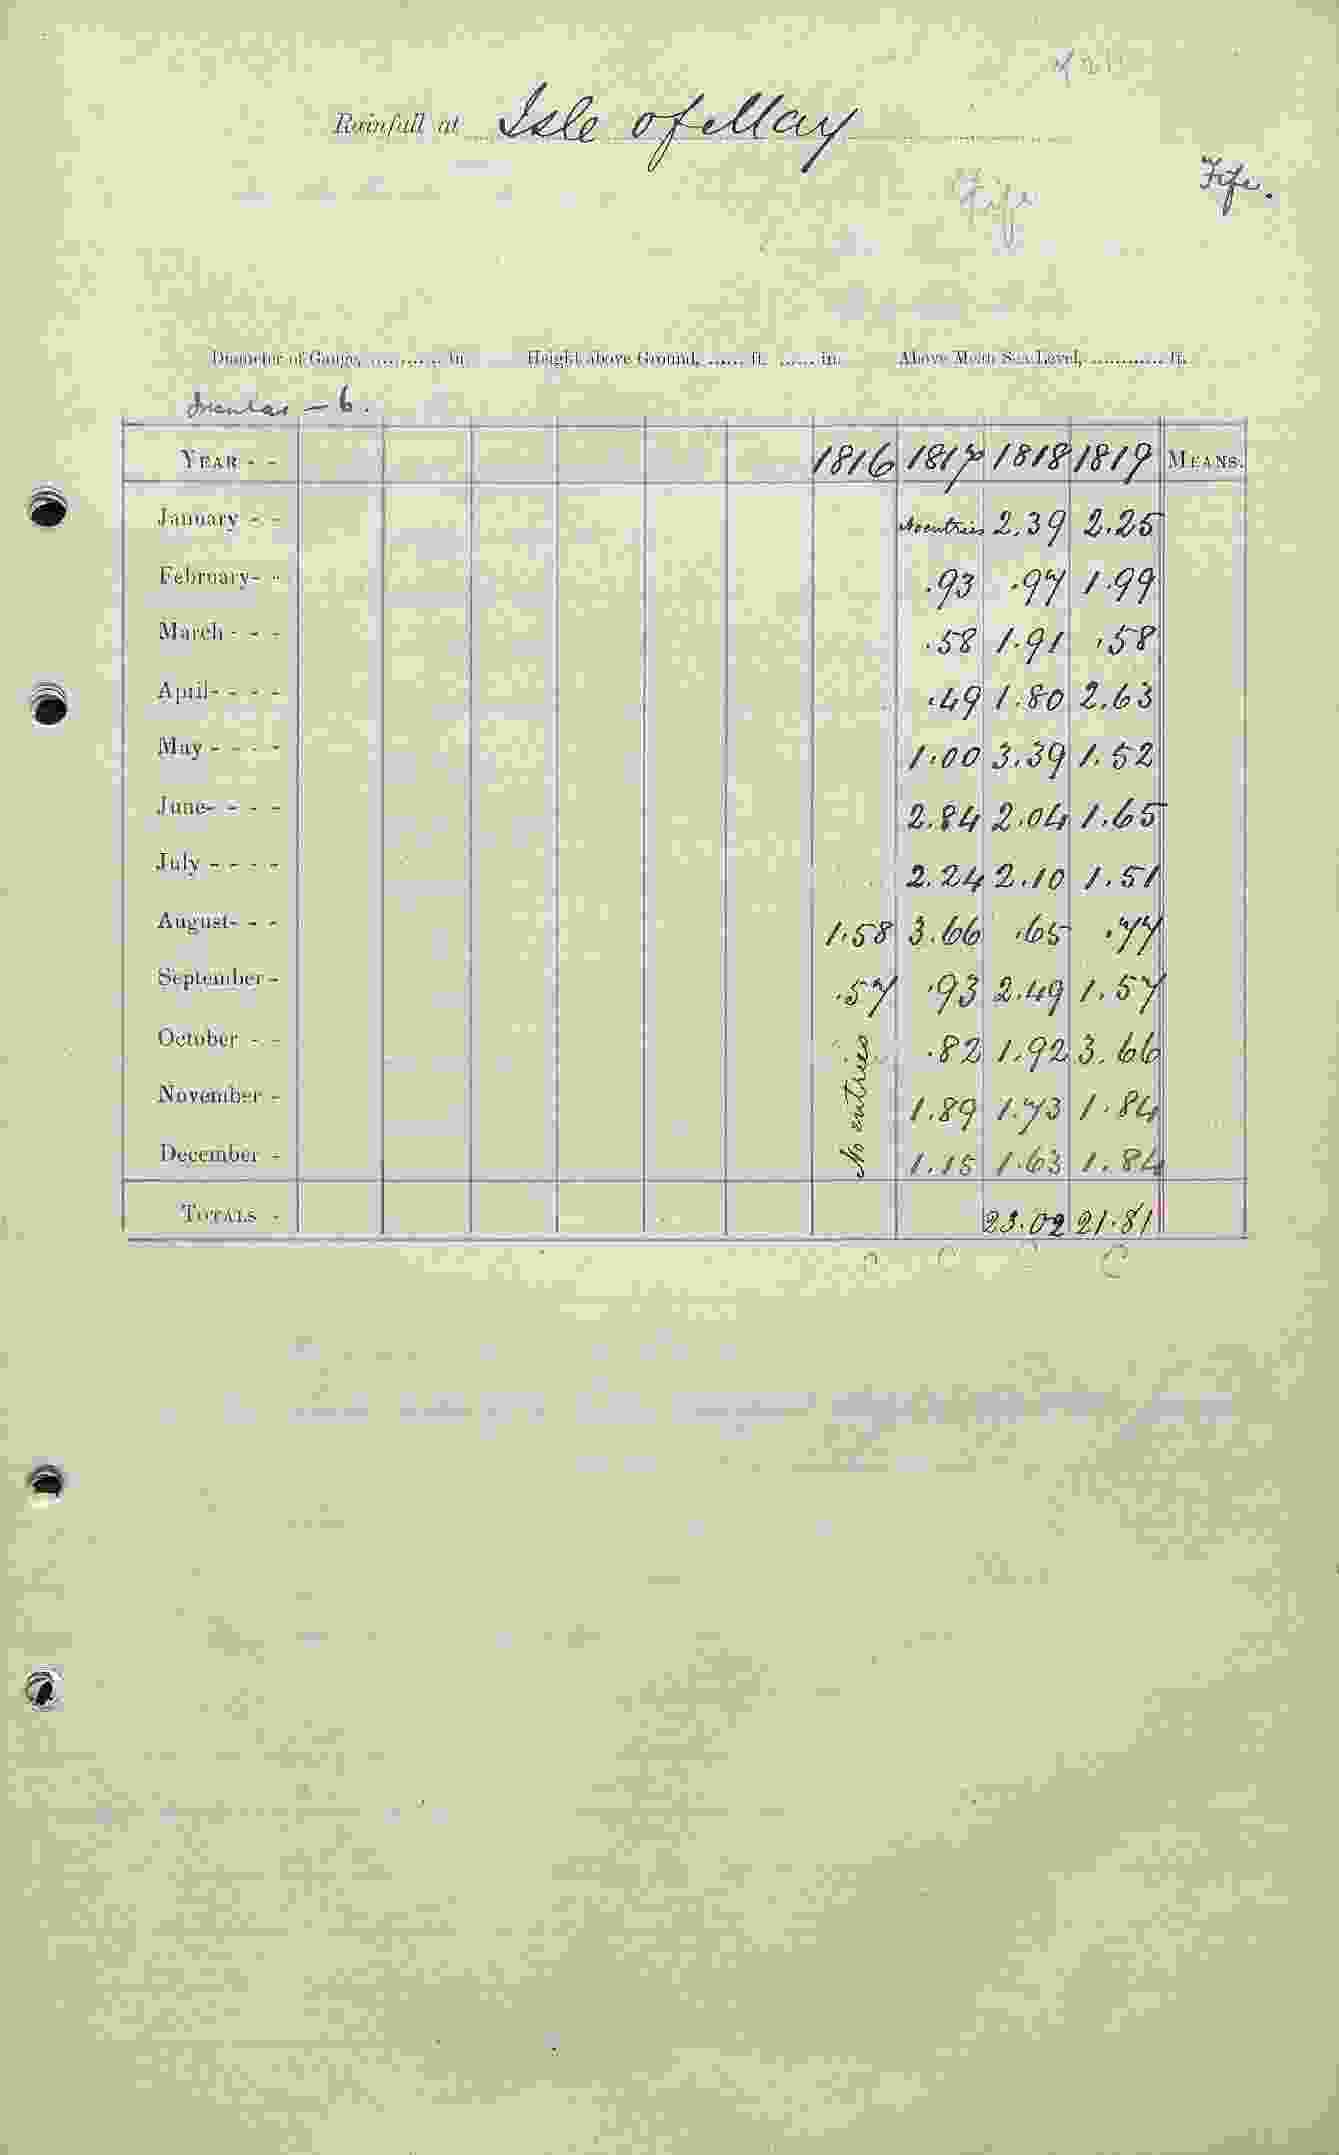 Rainfall at Isle of May
Fife.
Fife
Diameter of Gauge, ............ in. Height above Ground, ...... ft. ...... in. Above Mean Sea Level, ............ ft.
– 6.
YEAR - - 1816 1817 1818 1819 MEANS.
January - - No entries 2.39 2.25
February- - .93 .97 1.99
March - - - .58 1.91 .58
April- - - - .49 1.80 2.63
May - - - - 1.00 3.39 1.52
June- - - - 2.84 2.04 1.65
July - - - - 2.24 2.10 1.51
August- - - 1.58 3.66 .65 .77
September - .57 .93 2.49 1.57
October - - No entries .82 1.92 3.66
November - 1.89 1.73 1.84
December - 1.15 1.63 1.84
TOTALS - 23.02 21.81
C C C C